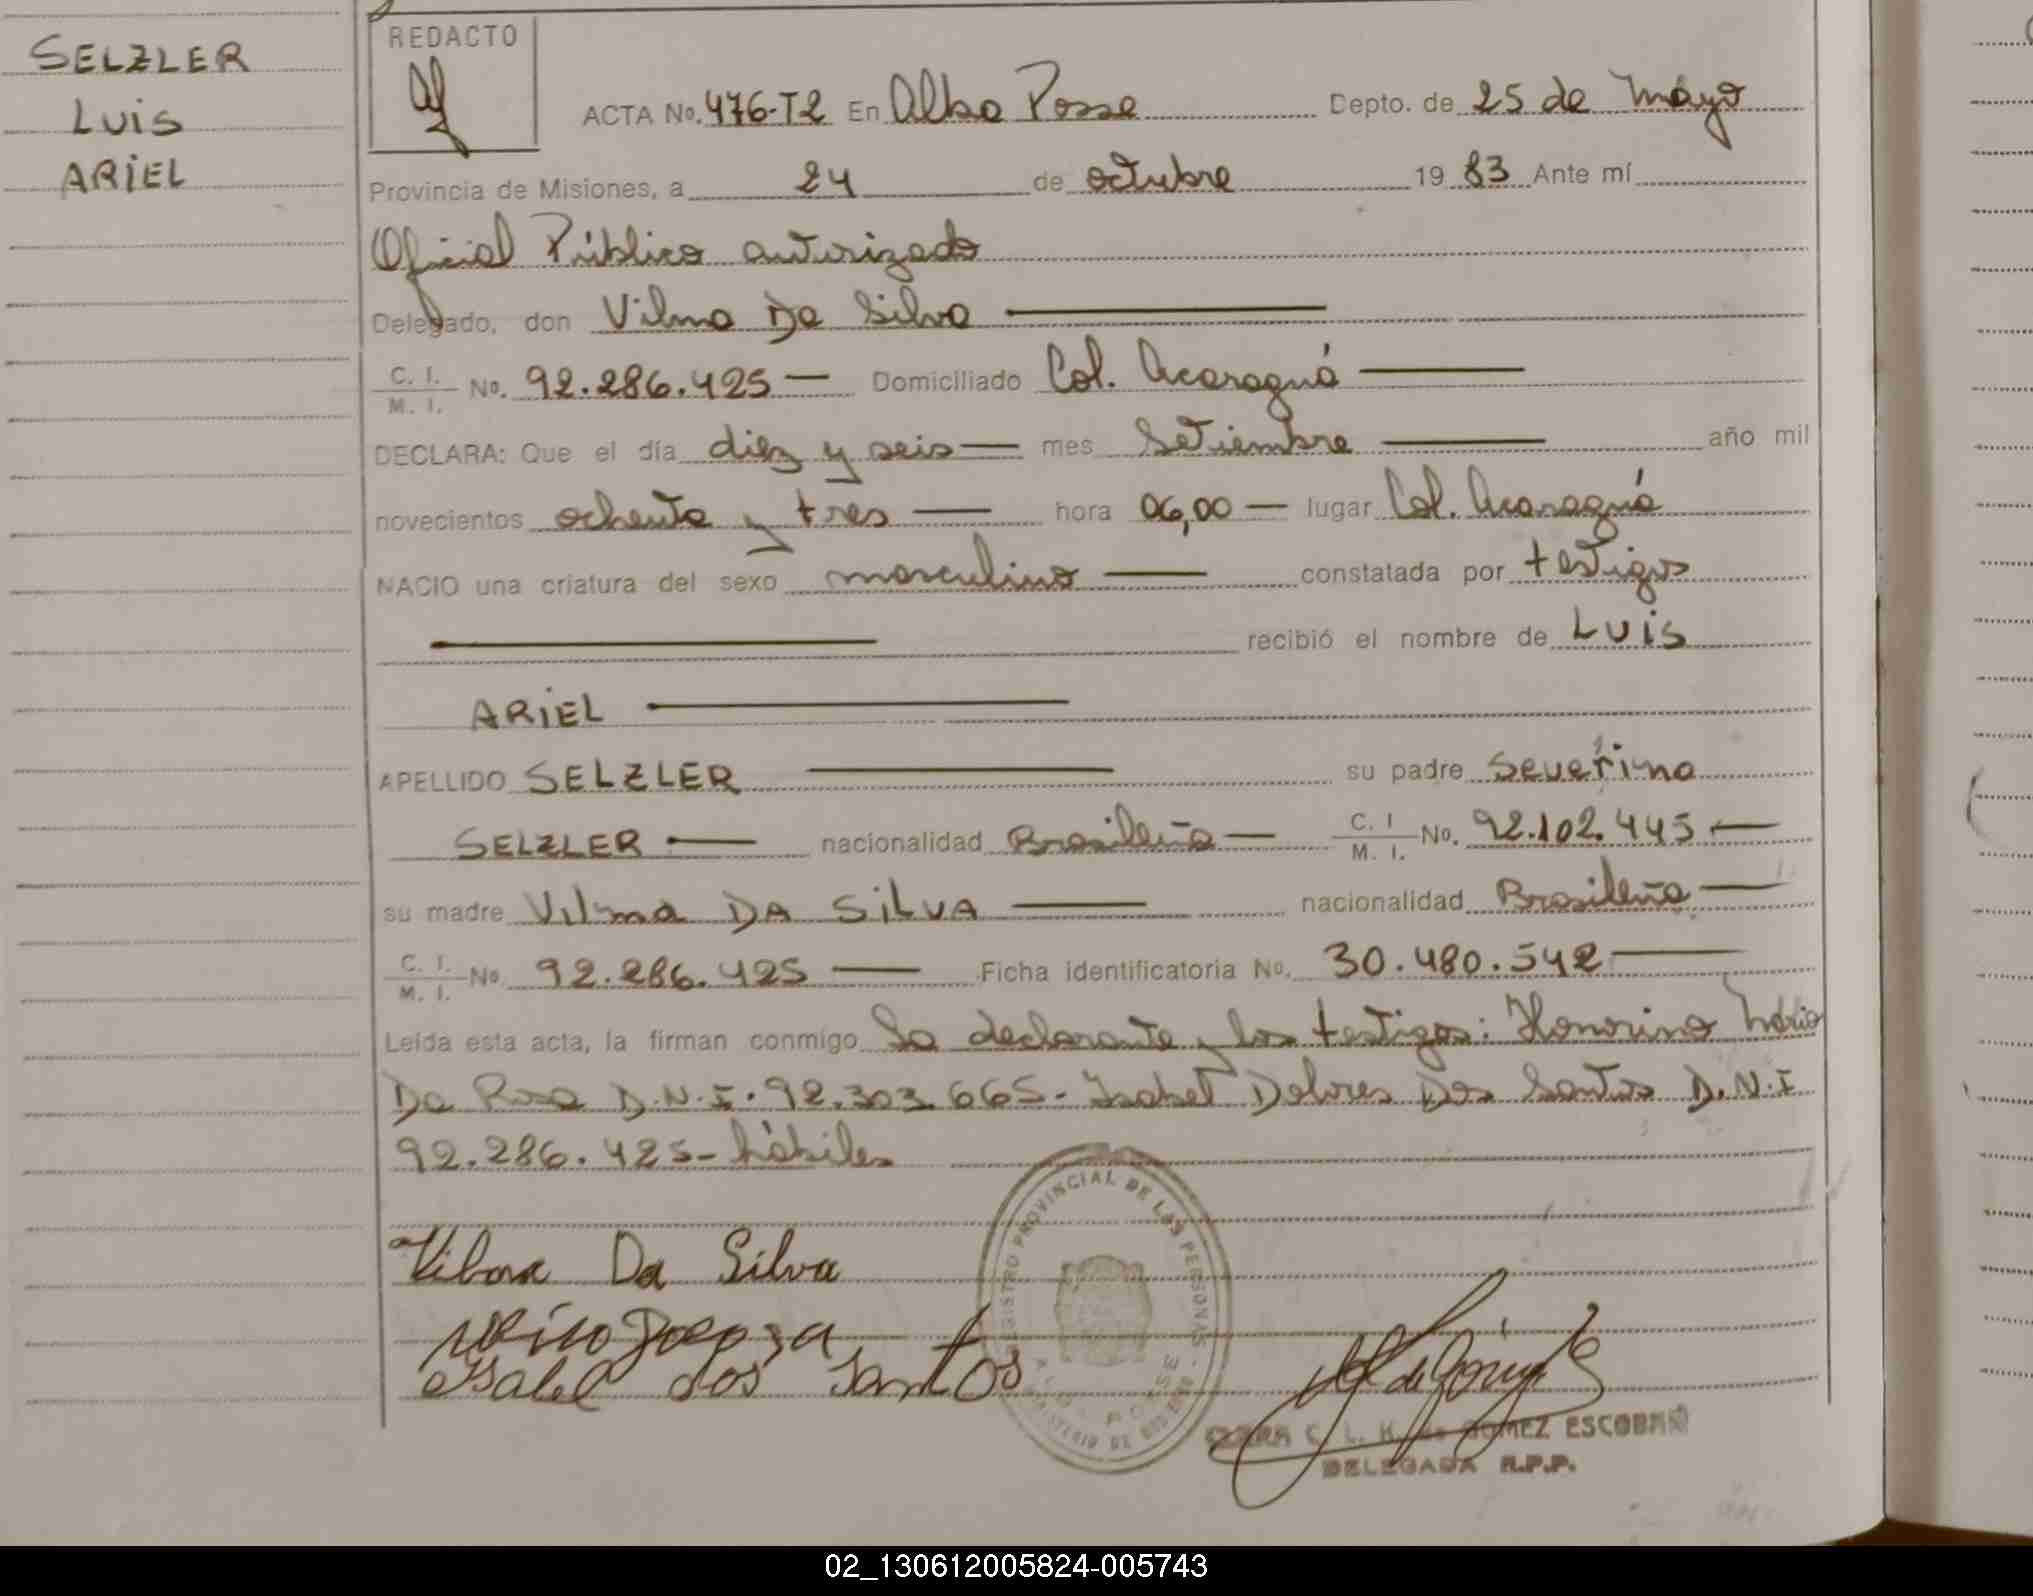 SELZLER
LUIS
ARIEL
REDACTO
ACTA No. 476-T2 En Alba Posse Depto. de 25 de Mayo
Provincia de Misiones, a 24 de octubre 19 83 Ante mí
Oficial Público autorizado
Delegado, don Vilma Da Silva
C. I. / M. I. No. 92.286.425 — Domiciliado Col. Acaraguá
DECLARA: Que el día diez y seis — mes Setiembre — año mil
novecientos ochenta y tres — hora 06,00 — lugar Col. Acaraguá
NACIO una criatura del sexo masculino — constatada por testigos
recibió el nombre de LUIS
ARIEL
APELLIDO SELZLER — su padre Severino
SELZLER — nacionalidad Brasileña — C. I / M. I. No. 92.102.445 —
su madre Vilma DA SILVA — nacionalidad Brasileña —
C. I. / M. I. No. 92.286.425 — Ficha identificatoria No. 30.480.542 —
Leída esta acta, la firman conmigo La declarante y los testigos: Honorino Mário
Da Rosa D.N.I. 92.303.665- Isabel Delores Dos Santos D.N.I
92.286.425- hábiles
REGISTRO PROVINCIAL DE LAS PERSONAS
ALBA POSSE
MINISTERIO DE GOBIERNO
Vilma Da Silva
Isabel dos Santos
C. L. H. de GOMEZ ESCOBAR
DELEGADA R.P.P.
02_130612005824-005743